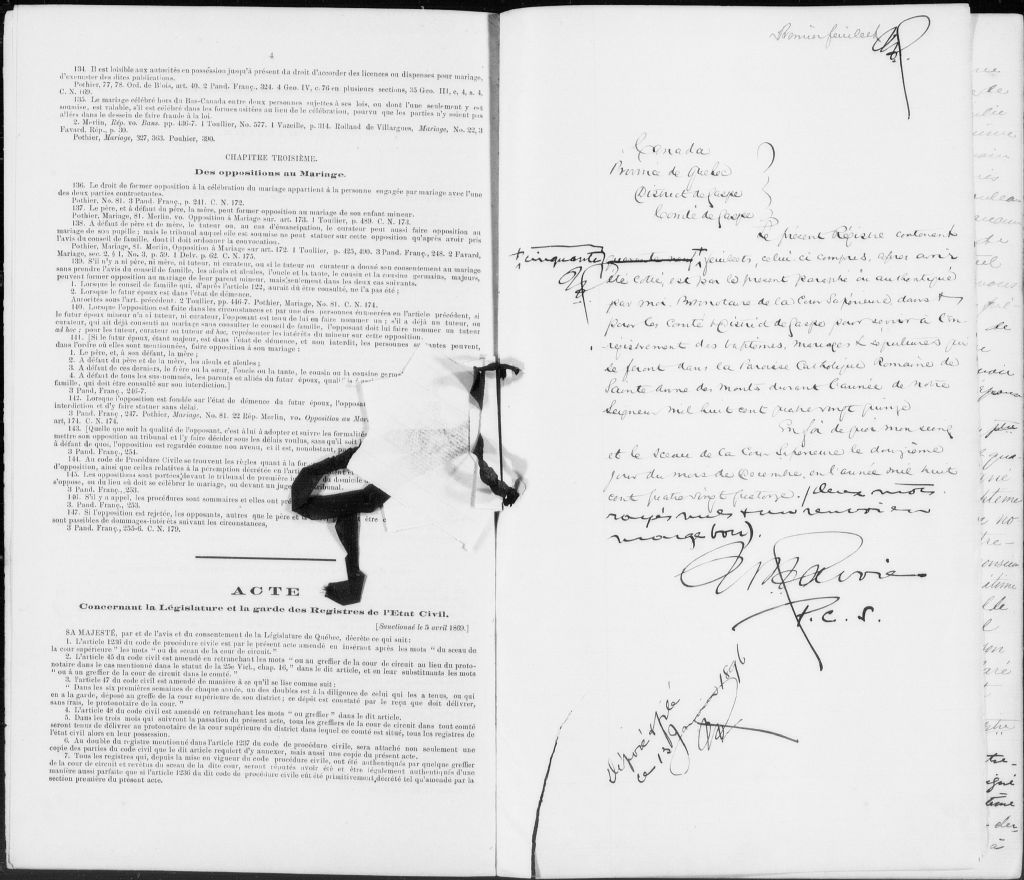 4
134. Il est loisible aux autorités en possession jusqu'à présent du droit d'accorder des licences ou dispenses pour mariage,
d'exempter des dites publications.
Pothier, 77, 78. Ord. de Blois, art. 40. 2 Pand. Franç., 324. 4 Geo. IV, c. 76 en plusieurs sections, 35 Geo. III, c. 4, s. 4.
C. N. 169.
135. Le mariage célébré hors du Bas-Canada entre deux personnes sujettes à ses lois, ou dont l'une seulement y est
soumise, est valable, s'il est célébré dans les formes usitées au lieu de la célébration, pourvu que les parties n'y soient pas
allées dans le dessein de faire fraude à la loi.
2. Merlin, Rép. vo. Bans. pp. 436-7. 1 Toullier, No. 577. 1 Vazeille, p. 314. Rolland de Villargues, Mariage, No. 22, 3
Favard. Rép., p. 30.
Pothier, Mariage, 327, 363. Pouhier, 390.
CHAPITRE TROISIÈME.
Des oppositions au Mariage.
136. Le droit de former opposition à la célébration du mariage appartient à la personne engagée par mariage avec l'une
des deux parties contractantes.
Pothier, No. 81. 3 Pand. Franç., p. 241. C. N. 172.
137. Le père, et à défaut du père, la mère, peut former opposition au mariage de son enfant mineur.
Pothier, Mariage, 81. Merlin, vo. Opposition à Mariage sur. art. 173. 1 Toullier, p. 489. C. N. 173.
138. A défaut de père et de mère, le tuteur ou, au cas d'émancipation, le curateur peut aussi faire opposition au
mariage de son pupille; mais le tribunal auquel elle est soumise ne peut statuer sur cette opposition qu'après avoir pris
l'avis du conseil de famille, dont il doit ordonner la convocation.
Pothier, Mariage, 81. Merlin, Opposition à Mariage sur art. 172. 1 Toullier, p. 425, 490. 3 Pand. Franç., 248. 2 Favard,
Mariage, sec. 2, § 1, No. 3, p. 59. 1 Delv. p. 62. C. N. 175.
139. S'il n'y a ni père, ni mère, ni tuteur, ni curateur, ou si le tuteur ou curateur a donné son consentement au mariage
sans prendre l'avis du conseil de famille, les aïeuls et aïeules, l'oncle et la tante, le cousin et la cousine germains, majeurs,
peuvent former opposition au mariage de leur parent mineur, mais seulement dans les deux cas suivants.
1. Lorsque le conseil de famille qui, d'après l'article 122, aurait dû être consulté, ne l'a pas été;
2. Lorsque le futur époux est dans l'état de démence.
Autorités sous l'art. précédent. 2 Toullier, pp. 446-7. Pothier, Mariage, No. 81. C. N. 174.
140. Lorsque l'opposition est faite dans les circonstances et par une des personnes énumérées en l'article précédent, si
le futur époux mineur n'a ni tuteur, ni curateur, l'opposant est tenu de lui en faire nommer un; s'il a déjà un tuteur, ou
curateur, qui ait déjà consenti au mariage sans consulter le conseil de famille, l'opposant doit lui faire nommer un tuteur
ad hoc: pour les tuteur, curateur ou tuteur ad hoc, représenter les intérêts du mineur sur cette opposition.
141. [Si le futur époux, étant majeur, est dans l'état de démence, et non interdit, les personnes peuvent,
dans l'ordre où elles sont mentionnées, faire opposition à son mariage:
1. Le père, et, à son défaut, la mère;
2. A défaut du père et de la mère, les aïeuls et aïeules;
3. A défaut de ces derniers, le frère ou la sœur, l'oncle ou la tante, le cousin ou la cousine
4. A défaut de tous les sus-nommés, les parents et alliés du futur époux,
famille, qui doit être consulté sur son interdiction.]
3 Pand. Franç., 246-7.
142. Lorsque l'opposition est fondée sur l'état de démence du futur époux,
interdiction et d'y faire statuer sans délai.
3 Pand. Franç., 247. Pothier, Mariage, No. 81. 22 Rép. Merlin, vo. Opposition au
art, 174. C. N. 174.
143. [Quelle que soit la qualité de l'opposant, c'est à lui à adopter et suivre les formalités
mettre son opposition au tribunal et l'y faire décider sous les délais voulus, sans qu'il soit
à défaut de quoi, l'opposition est regardée comme non avenu, et il est, nonobstant,
3 Pand. Franç., 254.
144. Au code de Procédure Civile se trouvent les règles quant à la
d'opposition, ainsi que celles relatives à la péremption décrétée en
145. Les oppositions sont portées devant le tribunal de première domicile
s'oppose, ou du lieu où doit se célébrer le mariage, ou devant un tribunal.
3 Pand. Franç., 253.
146. S'il y a appel, les procédures sont sommaires et elles ont
3. Pand. Franç., 253.
147. Si l'opposition est rejetée, les opposants, autres que le père et être
sont passibles de dommages-intérêts suivant les circonstances,
3 Pand. Franç., 255-6. C. N. 179.
ACTE
Concernant la Législature et la garde des Registres de l'Etat Civil.
[Sanctionné le 5 avril 1869.]
SA MAJESTÉ, par et de l'avis et du consentement de la Législature de Québec, décrète ce qui suit:
1. L'article 1236 du code de procédure civile est par le présent acte amendé en insérant après les mots "du sceau de
la cour supérieure" les mots "ou du sceau de la cour de circuit."
2. L'article 45 du code civil est amendé en retranchant les mots "ou au greffier de la cour de circuit au lieu du proto-
notaire dans le cas mentionné dans le statut de la 25e Vict., chap. 16," dans le dit article, et en leur substituant les mots
"ou à un greffier de la cour de circuit dans le comté."
3. l'article 47 du code civil est amendé de manière à ce qu'il se lise comme suit:
"Dans les six premières semaines de chaque année, un des doubles est à la diligence de celui qui les a tenus, ou qui
en a la garde, déposé au greffe de la cour supérieure de son district; ce dépôt est constaté par le reçu que doit délivrer,
sans frais, le protonotaire de la cour."
4. L'article 48 du code civil est amendé en retranchant les mots "ou greffier" dans le dit article.
5. Dans les trois mois qui suivront la passation du présent acte, tous les greffiers de la cour de circuit dans tout comté
seront tenus de délivrer au protonotaire de la cour supérieure du district dans lequel ce comté est situé, tous les registres de
l'état civil alors en leur possession.
6. Au double du registre mentionné dans l'article 1237 du code de procédure civile, sera attaché non seulement une
copie des parties du code civil que le dit article requiert d'y annexer, mais aussi une copie du présent acte.
7. Tous les registres qui, depuis la mise en vigueur du code procédure civile, ont été authentiqués par quelque greffier
de la cour de circuit et revêtus du sceau de la dite cour, seront réputés avoir été et être légalement authentiqués d'une
manière aussi parfaite que si l'article 1236 du dit code de procédure civile eût été primitivement décrété tel qu'amendé par la
section première du présent acte.
Premier feuillet
Canada
Province de Québec
District de Gaspé
Comté de Gaspé
Le présent Régistre contenant
+ cinquante + feuillets, celui ci compris, après avoir
été coté, est par le présent paraphé & authentiqué
par moi, Protonotaire de la Cour Supérieure dans &
pour les Comté & District de Gaspé pour servir à l'en-
régistrement des baptêmes, Mariages & Sépultures qui
se feront dans la Paroisse Catholique Romaine de
Sainte Anne des Monts durant l'année de Notre
Seigneur Mil huit cent quatre vingt quinze
En foi de quoi mon seing
et le Sceau de la Cour Supérieure le douzième
jour du mois de Décembre en l'année mil huit
cent quatre vingt quatorze. (deux mots
rayés nuls & un renvoi en
marge bon).
P. C. S.
déposé & filé
ce 13 1896